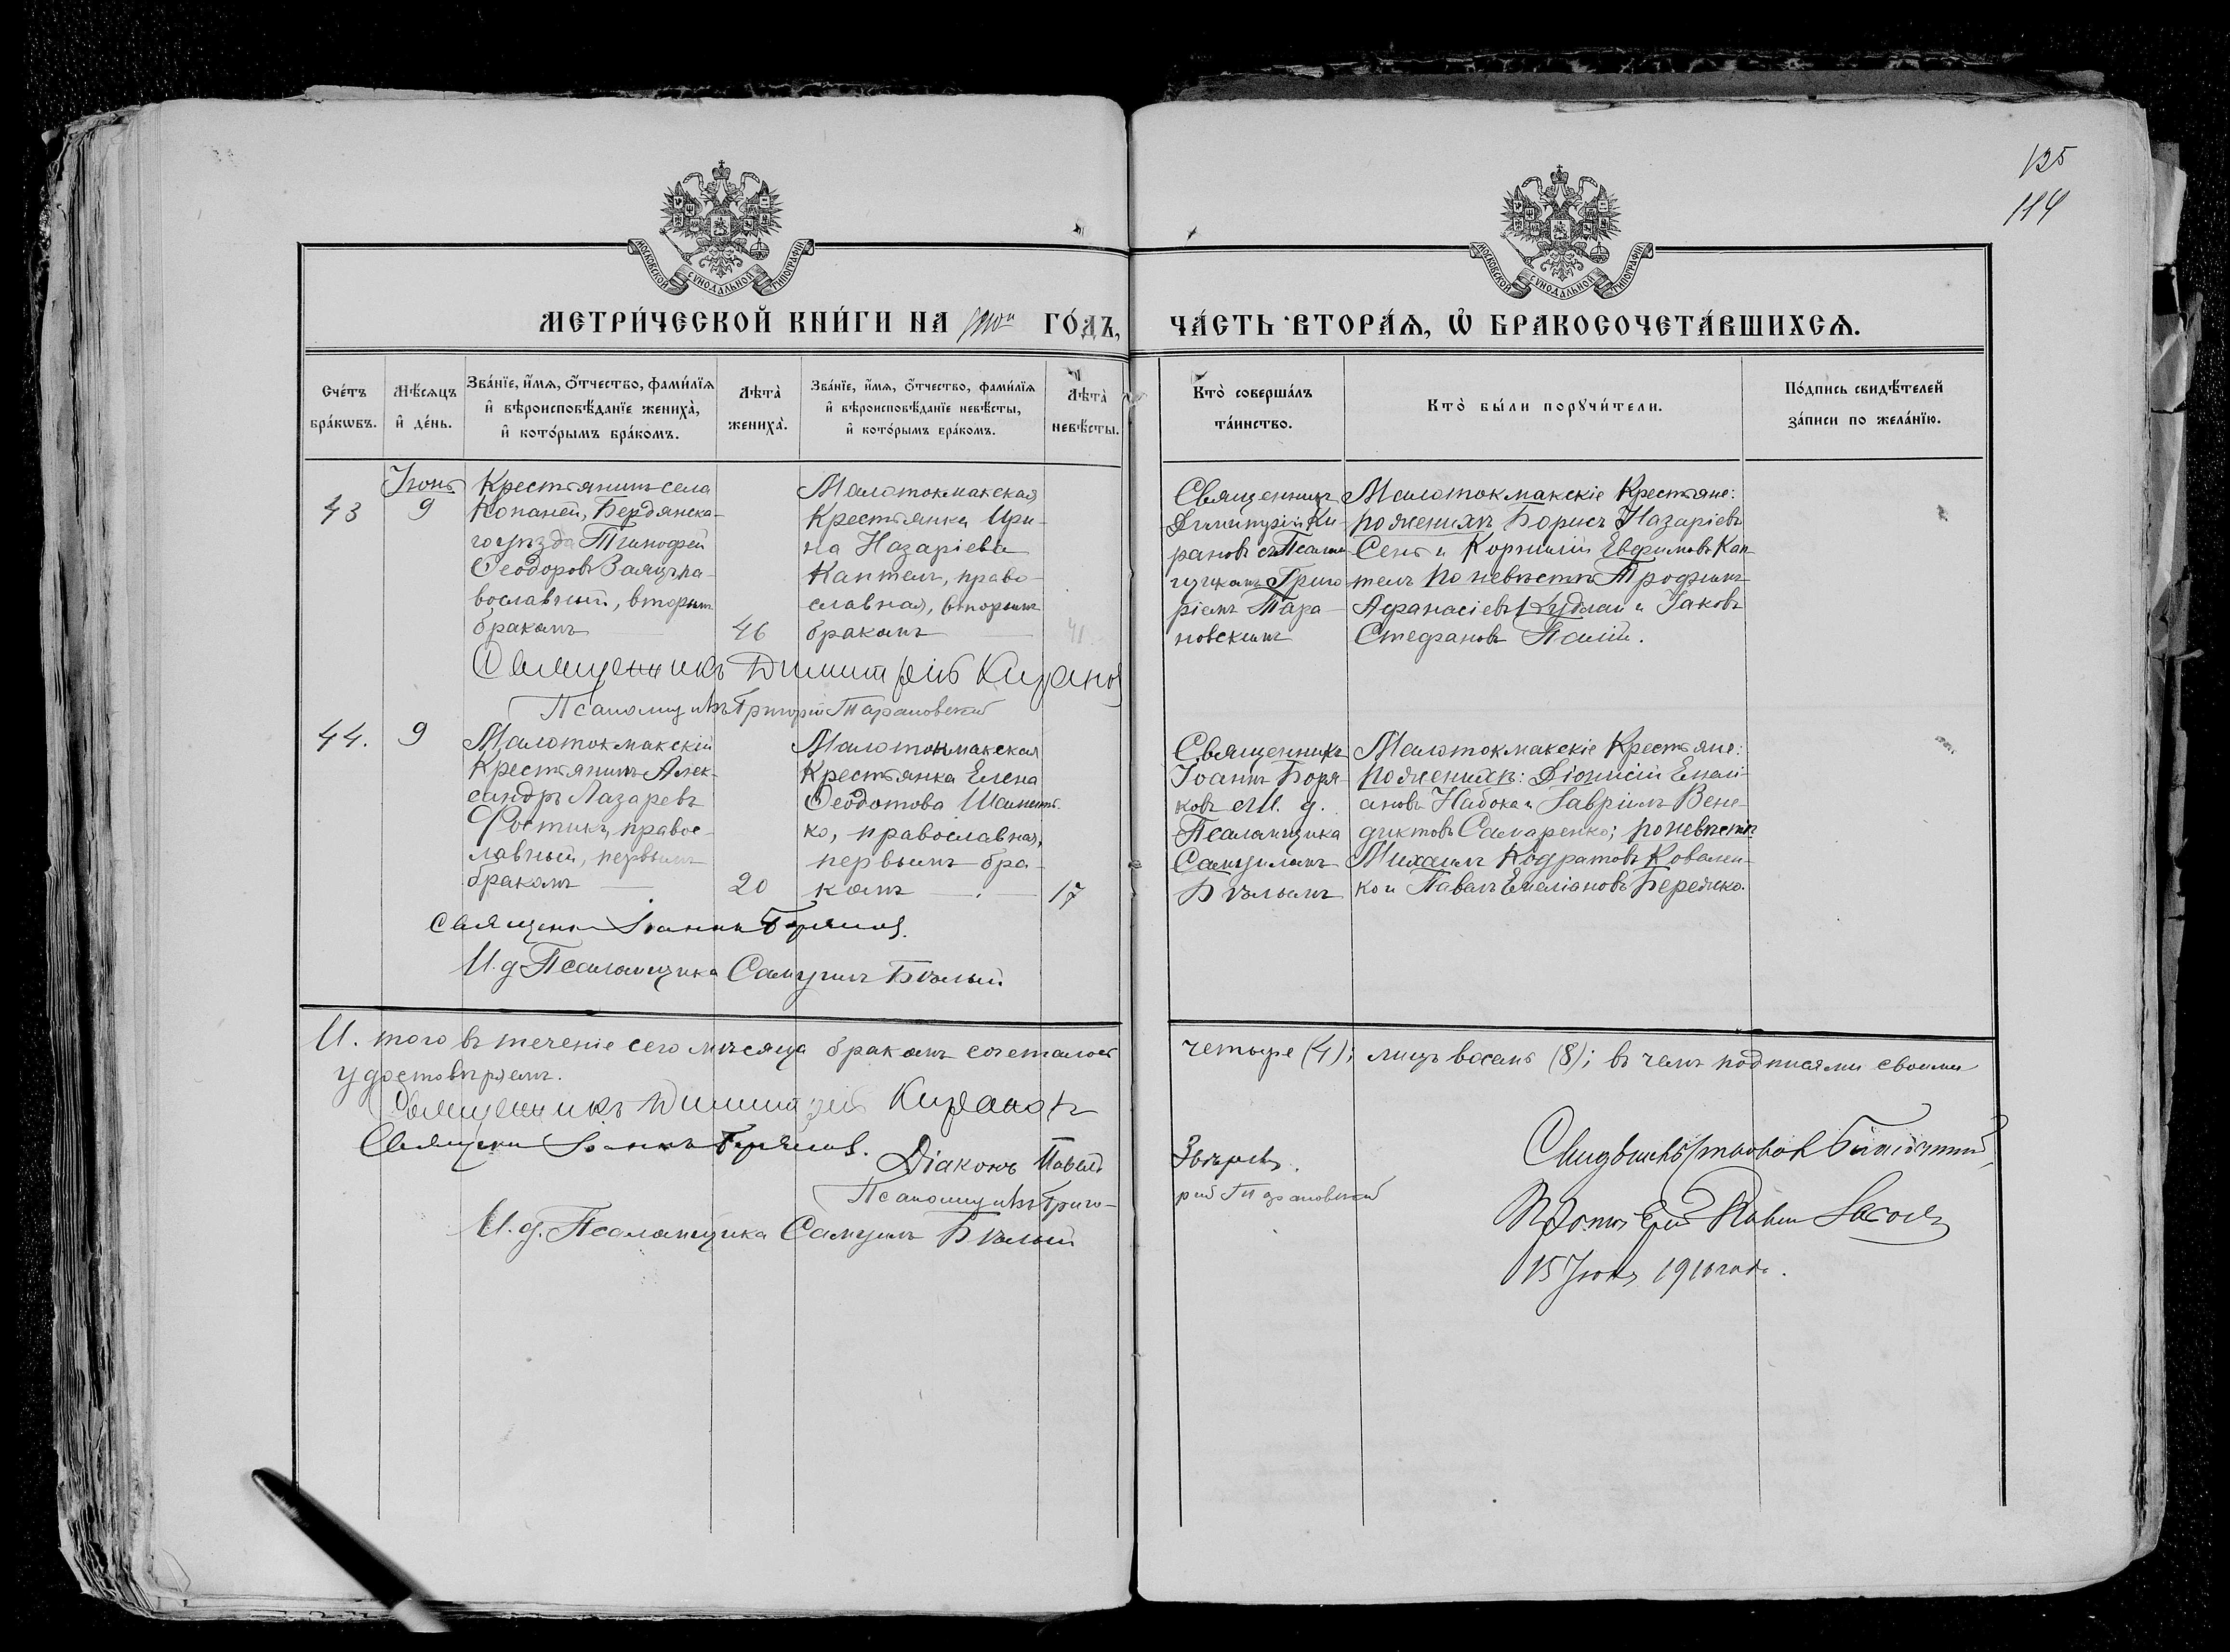 125
114
МОСКОВСКОЙ СУНОДАЛЬНОЙ ТИПОГРАФІИ
МОСКОВСКОЙ СУНОДАЛЬНОЙ ТИПОГРАФІИ
МЕТРИ́ЧЕСКОЙ КНИ́ГИ НА 1910й ГО́ДЪ,
ЧА́СТЬ ВТОРА́Ѧ, Ѡ҆ БРАКОСОЧЕТА́ВШИХСѦ.
Сче́тъ бра́кѡвъ.
Мѣ́сѧцъ и҆ де́нь.
Зва́нїе, и҆́мѧ, ѻ҆́тчество, фами́лїѧ
и҆ вѣроисповѣ́данїе жениха̀,
и҆ кото́рымъ бра́комъ.
Лѣта̀ жениха̀.
Зва́нїе, и҆́мѧ, ѻ҆́тчество, фами́лїѧ
и҆ вѣроисповѣ́данїе невѣ́сты,
и҆ кото́рымъ бра́комъ.
Лѣта̀ невѣ́сты.
Кто̀ соверша́лъ та́инство.
Кто̀ бы́ли порꙋчи́тели.
По́дпись свидѣ́телей за́писи по жела́нїю.
43
Іюнь
9
Крестьянинъ села
Копаней, Бердянска-
го уѣзда Тимофей
Ѳеодоровъ Заяцъ, па-
вославный, вторым
бракомъ
46
Малотокмакская
Крестьянка Ири-
на Назаріева
Каптелъ, право-
славная, вторымъ
бракомъ
41
Священникъ
Димитрій Ки-
рановъ съ Псалом-
щикомъ Григо
ріемъ Тара-
новскимъ
Малотокмакскіе Крестьяне:
по женихѣ Борисъ Назаріевъ
Сень и Корнилій Евфимовъ Кап-
телъ по невѣстѣ Трофимъ
Аѳанасіевъ Кудлай и Іаковъ
Стефановъ Палій.
Священникъ Димитрій Кирановъ
Псаломщикъ Григорій Тарановскій
44.
9
Малотокмакскій
Крестьянинъ Алек-
сандръ Лазаревъ
Фостикъ, правос-
лавный, первымъ
бракомъ
20
Малотокмакская
Крестьянка Елена
Ѳеодотова Шамет-
ко, православная,
первымъ бра-
комъ
17
Священникъ
Іоаннъ Боря-
ковъ с И. д.
Псаломщика
Самуиломъ
Бѣлымъ
Малотокмакскіе Крестьяне:
по женихѣ: Діонисій Емелі-
ановъ Набока и Гавріилъ Вене-
диктовъ Самаренко; по невѣстѣ
Михаилъ Кодратовъ Ковален-
ко и Павелъ Емеліановъ Бережко.
Священн Іоаннъ Боряковъ.
И. д Псаломщика Самуилъ Бѣлый
И. того въ теченіе сего мѣсяца бракомъ сочеталось
четыре (4); лицъ восемь (8); въ чемъ подписями своими
удостовѣряемъ.
Священникъ Димитрій Кирановъ
Священн Іоаннъ Боряковъ.
Діаконъ Павелъ
Звѣревъ.
Псаломщикъ Григо-
рій Тарановскій
И. д. Псаломщика Самуилъ Бѣлый
Свидѣтельствовалъ Благочинный,
Протоіерей
15 Іюля 1910 года.